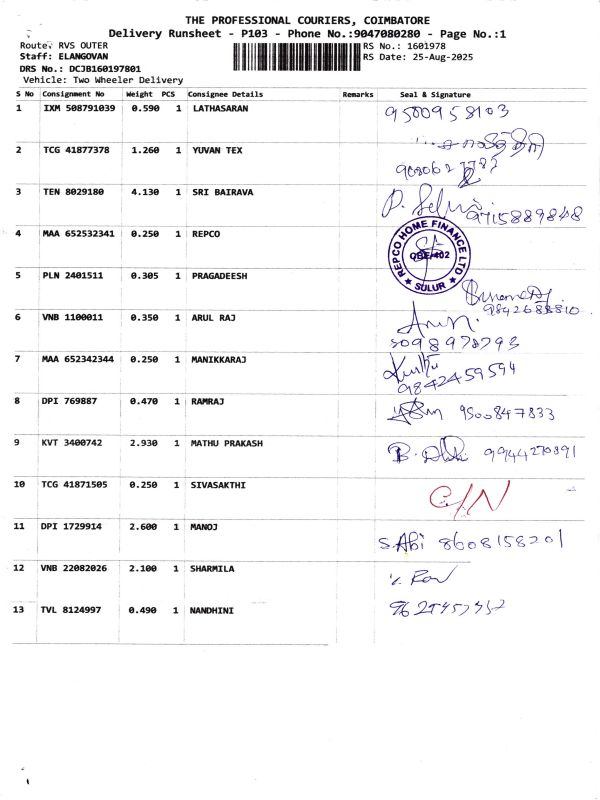 THE PROFESSIONAL COURIERS, COIMBATORE
Delivery Runsheet - P103 - Phone No.:9047080280 - Page No.:1
Route: RVS OUTER RS No.: 1601978
Staff: ELANGOVAN RS Date: 25-Aug-2025
DRS No.: DCJB160197801
Vehicle: Two Wheeler Delivery
S No Consignment No Weight PCS Consignee Details Remarks Seal & Signature
1 IXM 508791039 0.590 1 LATHASARAN 9500958103
2 TCG 41877378 1.260 1 YUVAN TEX
3 TEN 8029180 4.130 1 SRI BAIRAVA P. Selvi 9715889848
4 MAA 652532341 0.250 1 REPCO REPCO HOME FINANCE LTD SULUR
5 PLN 2401511 0.305 1 PRAGADEESH
6 VNB 1100011 0.350 1 ARUL RAJ
7 MAA 652342344 0.250 1 MANIKKARAJ 9842459594
8 DPI 769887 0.470 1 RAMRAJ 9500847833
9 KVT 3400742 2.930 1 MATHU PRAKASH 9944270891
10 TCG 41871505 0.250 1 SIVASAKTHI
11 DPI 1729914 2.600 1 MANOJ S.Abi 8608158201
12 VNB 22082026 2.100 1 SHARMILA
13 TVL 8124997 0.490 1 NANDHINI